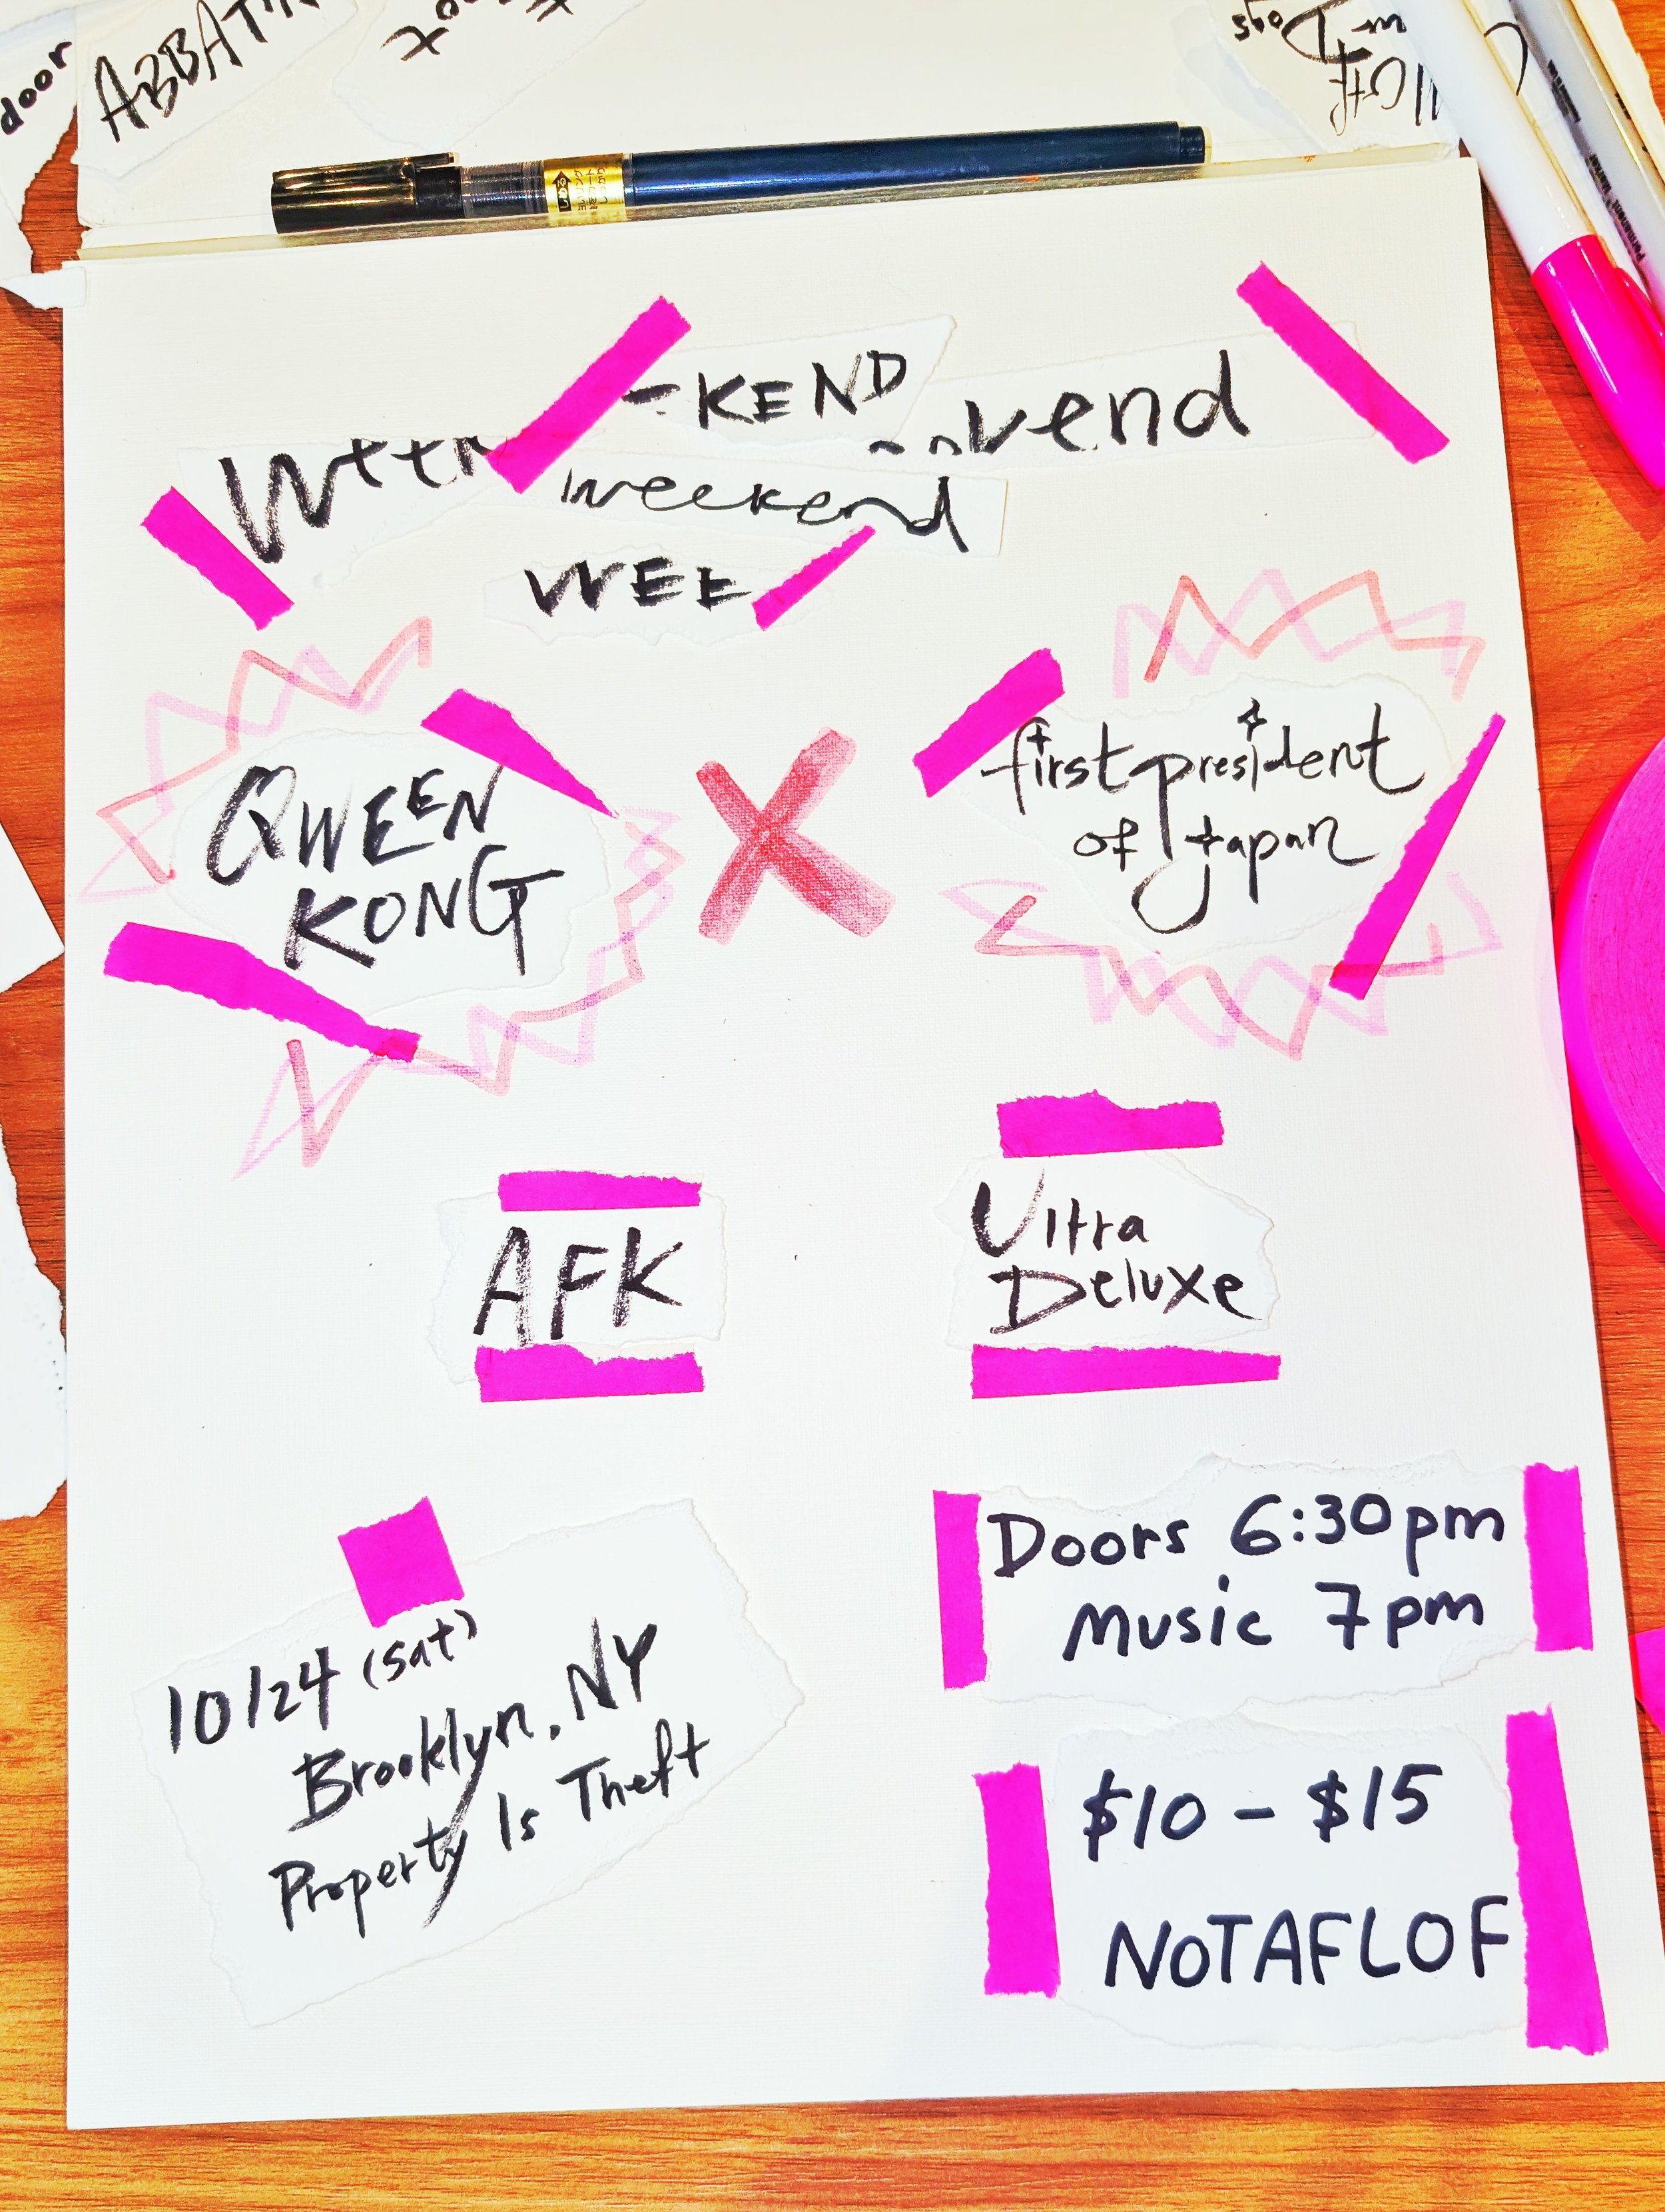 door
ABBATH
-KEND
Week
weekend
WEE
QWEEN
KONG
X
first president
of Japan
AFK
Ultra
Deluxe
Doors 6:30pm
Music 7pm
10/24 (Sat)
Brooklyn, NY
Property Is Theft
$10 - $15
NOTAFLOF
Permanent Marker